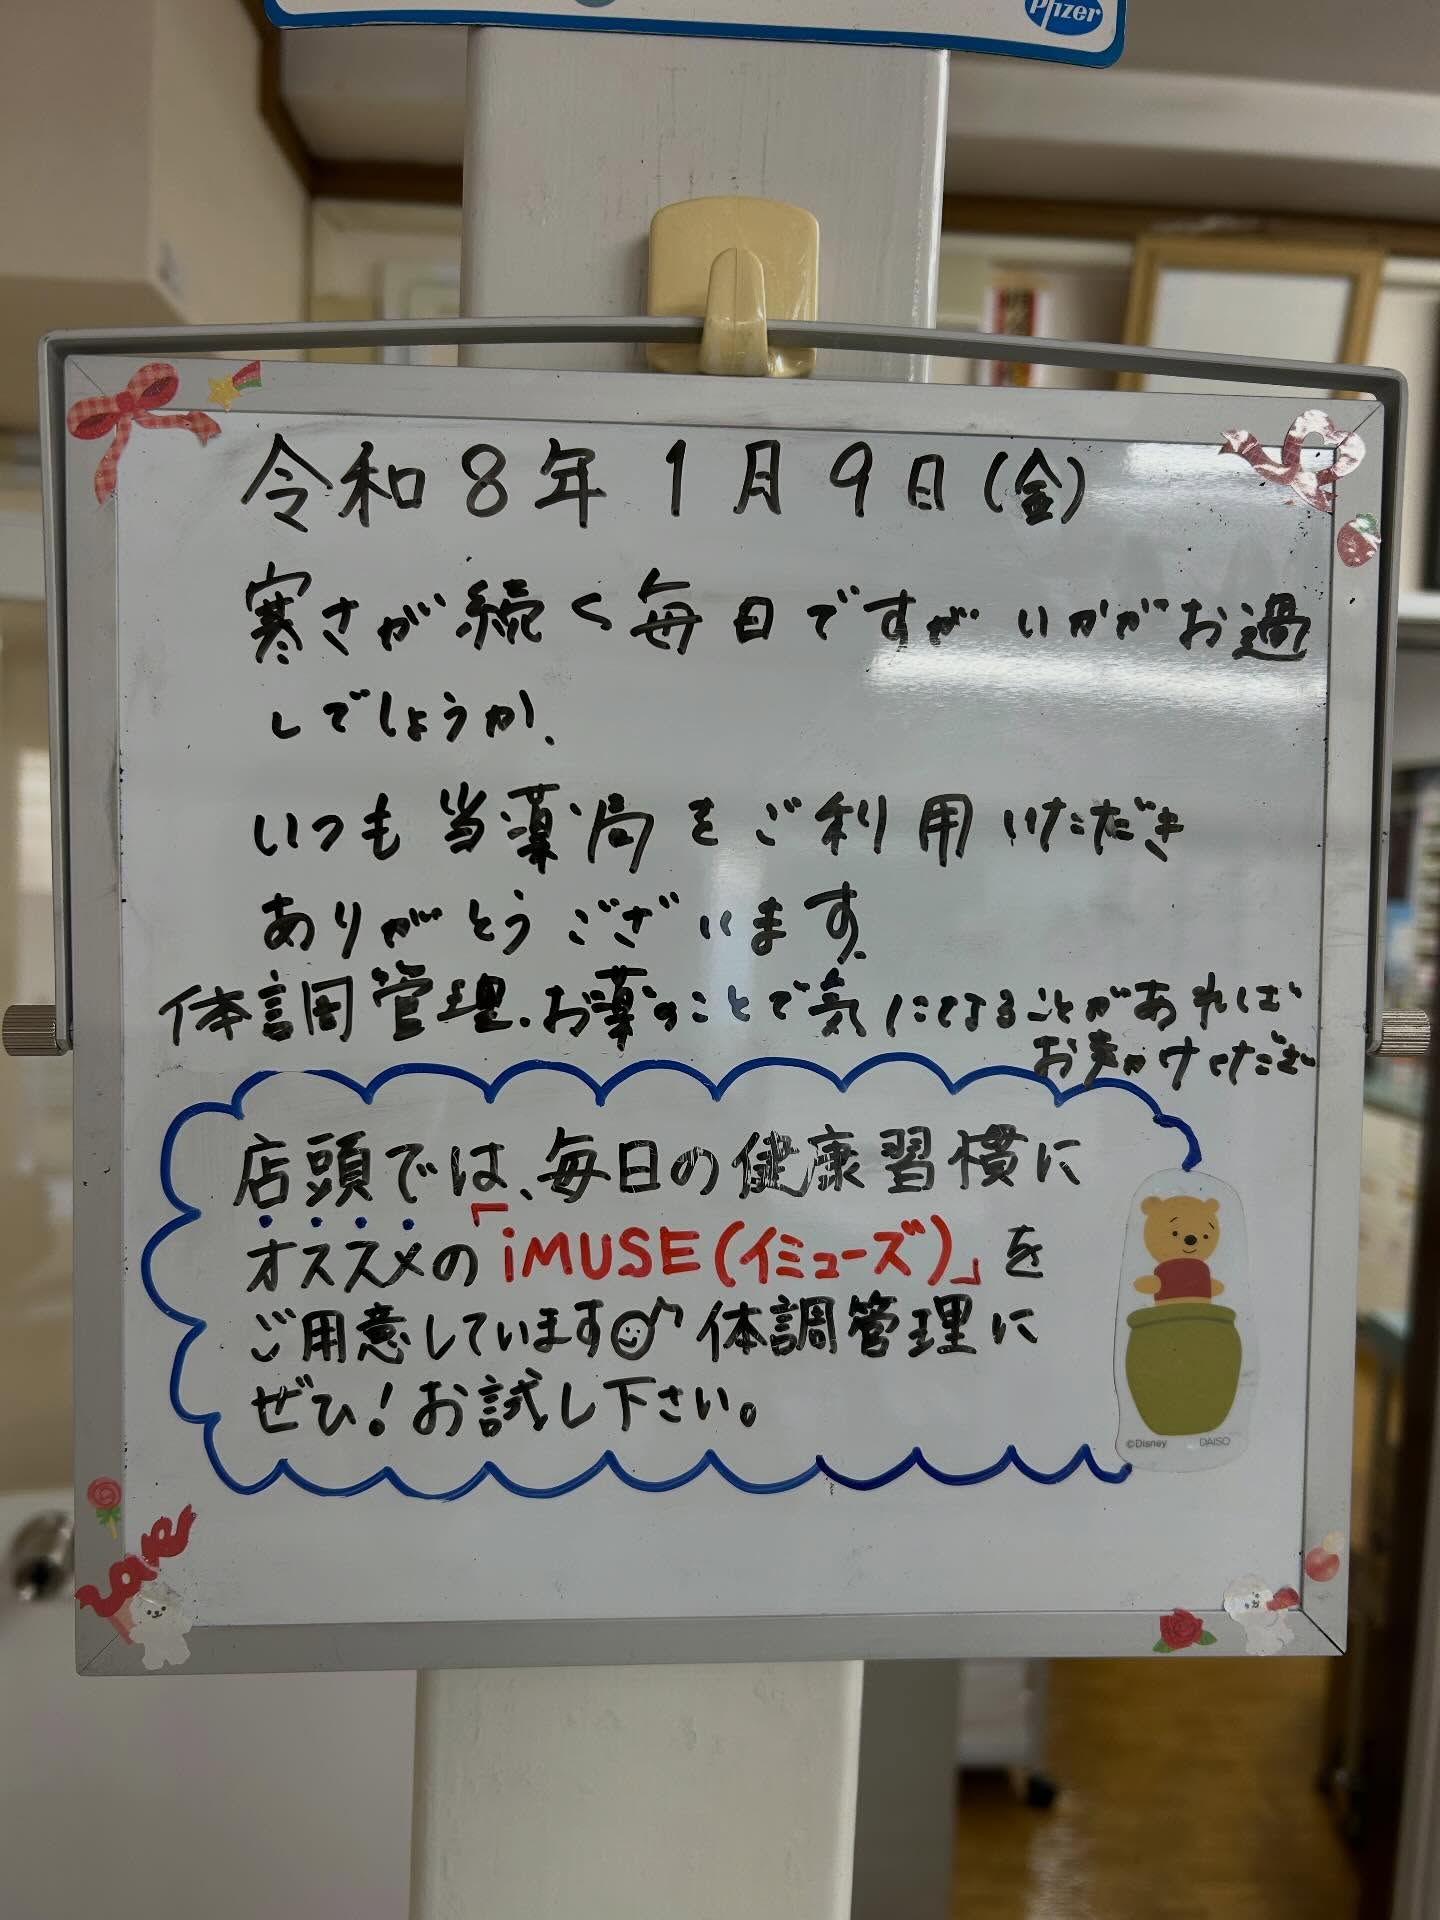 Pfizer
令和8年1月9日(金)
寒さが続く毎日ですがいかがお過
しでしょうか.
いつも当薬局をご利用いただき
ありがとうございます.
体調管理.お薬のことで気になることがあれば
お声かけくださ
店頭では、毎日の健康習慣に
オススメの「iMUSE(イミューズ)」を
ご用意しています 体調管理に
ぜひ!お試し下さい。
©Disney DAISO
Love